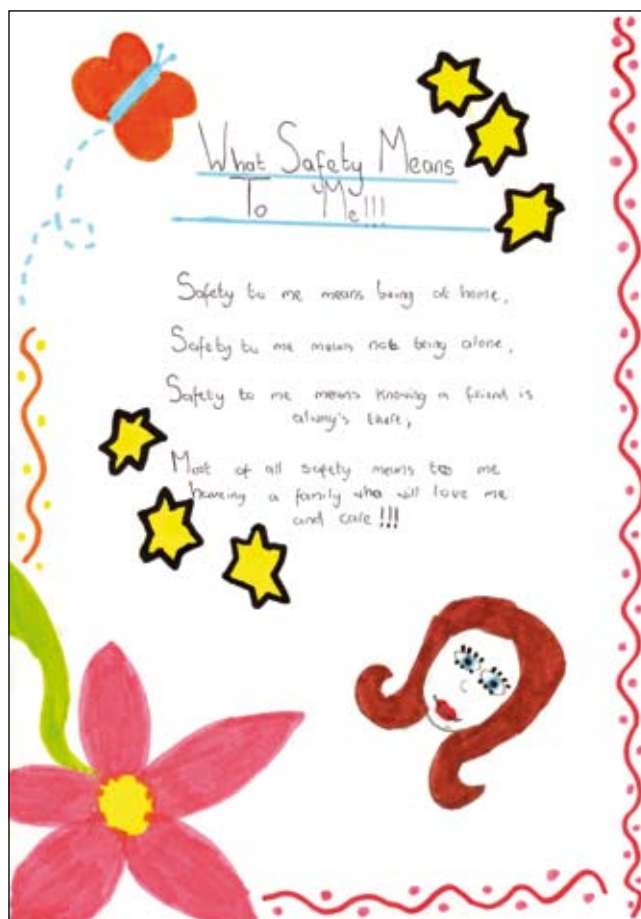 What Safety Means
To Me!!!
Safety to me means being at home,
Safety to me means not being alone,
Safety to me means knowing a friend is
alway's there,
Most of all safety means to me
haveing a family who will love me
and care!!!